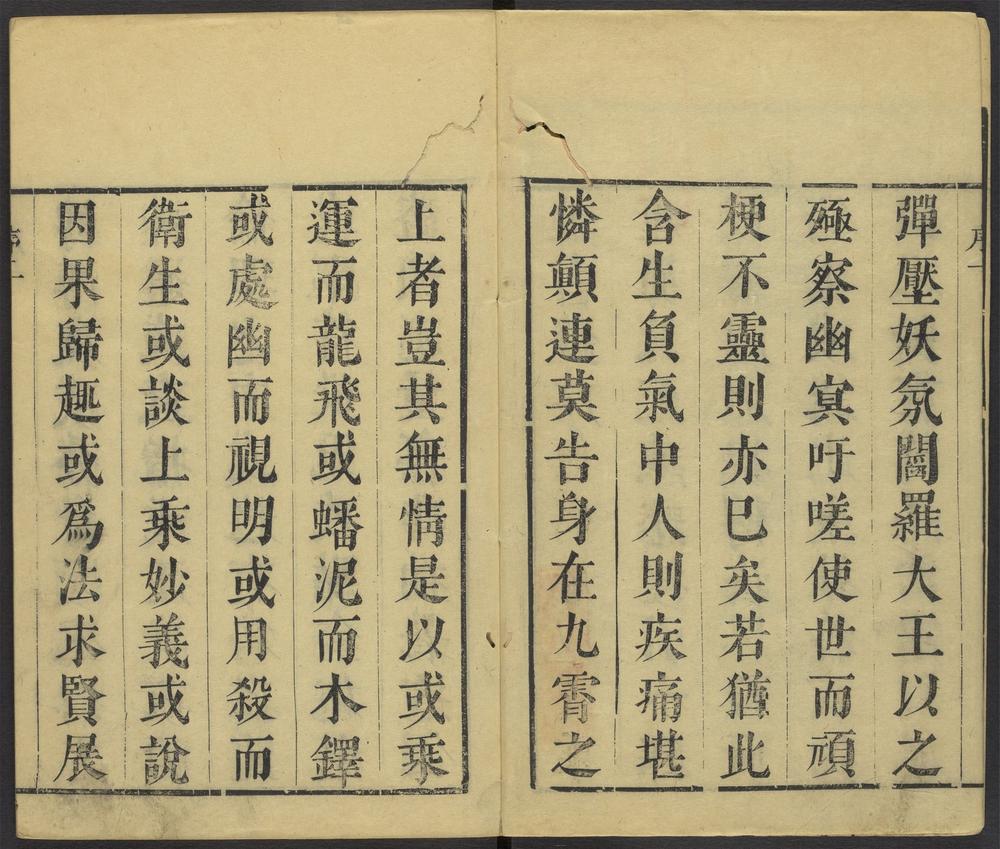 彈壓妖氛閻羅大王以之
殛察幽㝠吁嗟使世而頑
梗不靈則亦巳矣若猶此
含生負氣中人則疾痛堪
憐顛連莫告身在九霄之
上者豈其無情是以或乘
運而龍飛或蟠泥而木鐸
或處幽而視明或用殺而
衛生或談上乘妙義或說
因果歸趣或爲法求賢展